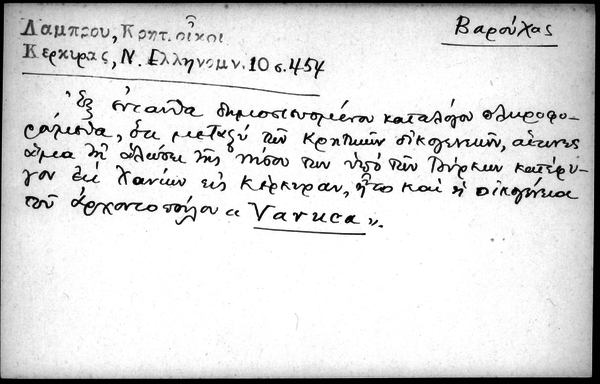 Βαρούχας
Λαμπρου, Κρητ. οἶκοι
Κερκυρας, Ν. Ελληνομν. 10 σ. 454
Ἐξ ἐνταῦθα δημοσιευομένου καταλόγου πληροφο-
ρούμεθα, ὅτι μεταξύ τῶν Κρητικῶν οἰκογενειῶν, αἵτινες
ἅμα τῇ ἁλώσει τῆς νήσου των ὑπό τῶν Τούρκων κατέφυ-
γον ἐκ Χανίων εἰς Κέρκυραν, ἦτο καί ἡ οἰκογένεια
τοῦ ἀρχοντοπούλου « Varuca ».